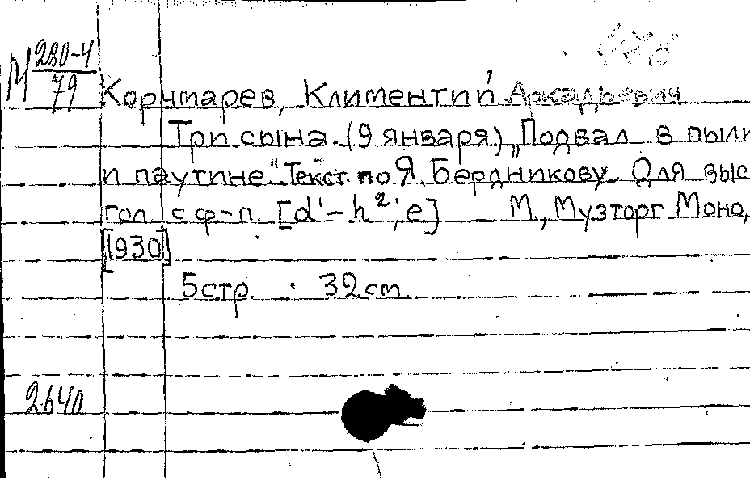 М 280-4
79
Корчмарев, Климентий Аркадьевич
Три сына. (9 января) „Подвал в пыли
и паутине" Текст по Я. Бердникову. Для выс
гол. с ф-п. [d'-h²; e] М., Музторг Моно,
[1930]
5 стр. 32 cm
2640